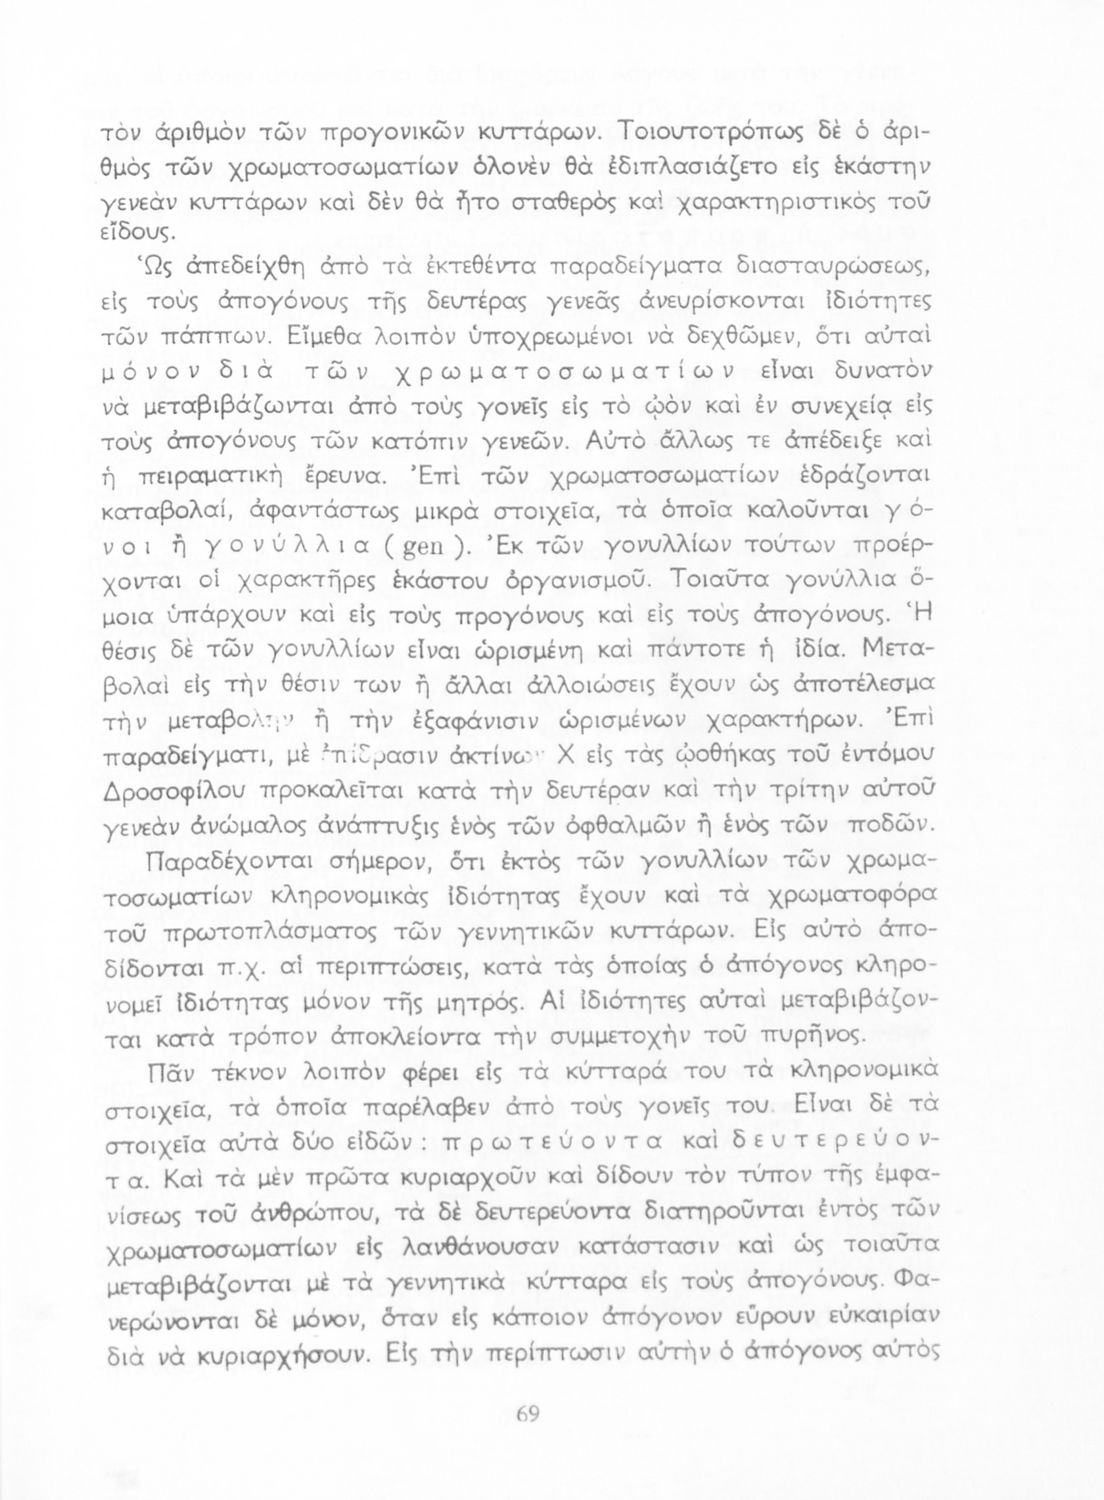 τὸν ἀριθμὸν τῶν προγονικῶν κυττάρων. Τοιουτοτρόπως δὲ ὁ ἀρι-
θμὸς τῶν χρωματοσωματίων ὁλονὲν θὰ ἐδιπλασιάζετο εἰς ἑκάστην
γενεὰν κυττάρων καὶ δὲν θὰ ἦτο σταθερὸς καὶ χαρακτηριστικὸς τοῦ
εἴδους.
Ὡς ἀπεδείχθη ἀπὸ τὰ ἐκτεθέντα παραδείγματα διασταυρώσεως,
εἰς τοὺς ἀπογόνους τῆς δευτέρας γενεᾶς ἀνευρίσκονται ἰδιότητες
τῶν πάππων. Εἴμεθα λοιπὸν ὑποχρεωμένοι νὰ δεχθῶμεν, ὅτι αὐταὶ
μόνον διὰ τῶν χρωματοσωματίων εἶναι δυνατὸν
νὰ μεταβιβάζωνται ἀπὸ τοὺς γονεῖς εἰς τὸ ᾠὸν καὶ ἐν συνεχείᾳ εἰς
τοὺς ἀπογόνους τῶν κατόπιν γενεῶν. Αὐτὸ ἄλλως τε ἀπέδειξε καὶ
ἡ πειραματικὴ ἔρευνα. Ἐπὶ τῶν χρωματοσωματίων ἑδράζονται
καταβολαί, ἀφαντάστως μικρὰ στοιχεῖα, τὰ ὁποῖα καλοῦνται γό-
νοι ἢ γονύλλια (gen). Ἐκ τῶν γονυλλίων τούτων προέρ-
χονται οἱ χαρακτῆρες ἑκάστου ὀργανισμοῦ. Τοιαῦτα γονύλλια ὅ-
μοια ὑπάρχουν καὶ εἰς τοὺς προγόνους καὶ εἰς τοὺς ἀπογόνους. Ἡ
θέσις δὲ τῶν γονυλλίων εἶναι ὡρισμένη καὶ πάντοτε ἡ ἰδία. Μετα-
βολαὶ εἰς τὴν θέσιν των ἢ ἄλλαι ἀλλοιώσεις ἔχουν ὡς ἀποτέλεσμα
τὴν μεταβολὴν ἢ τὴν ἐξαφάνισιν ὡρισμένων χαρακτήρων. Ἐπὶ
παραδείγματι, μὲ ἐπίδρασιν ἀκτίνων Χ εἰς τὰς ᾠοθήκας τοῦ ἐντόμου
Δροσοφίλου προκαλεῖται κατὰ τὴν δευτέραν καὶ τὴν τρίτην αὐτοῦ
γενεὰν ἀνώμαλος ἀνάπτυξις ἑνὸς τῶν ὀφθαλμῶν ἢ ἑνὸς τῶν ποδῶν.
Παραδέχονται σήμερον, ὅτι ἐκτὸς τῶν γονυλλίων τῶν χρωμα-
τοσωματίων κληρονομικὰς ἰδιότητας ἔχουν καὶ τὰ χρωματοφόρα
τοῦ πρωτοπλάσματος τῶν γεννητικῶν κυττάρων. Εἰς αὐτὸ ἀπο-
δίδονται π.χ. αἱ περιπτώσεις, κατὰ τὰς ὁποίας ὁ ἀπόγονος κληρο-
νομεῖ ἰδιότητας μόνον τῆς μητρός. Αἱ ἰδιότητες αὐταὶ μεταβιβάζον-
ται κατὰ τρόπον ἀποκλείοντα τὴν συμμετοχὴν τοῦ πυρῆνος.
Πᾶν τέκνον λοιπὸν φέρει εἰς τὰ κύτταρά του τὰ κληρονομικὰ
στοιχεῖα, τὰ ὁποῖα παρέλαβεν ἀπὸ τοὺς γονεῖς του. Εἶναι δὲ τὰ
στοιχεῖα αὐτὰ δύο εἰδῶν : πρωτεύοντα καὶ δευτερεύον-
τα. Καὶ τὰ μὲν πρῶτα κυριαρχοῦν καὶ δίδουν τὸν τύπον τῆς ἐμφα-
νίσεως τοῦ ἀνθρώπου, τὰ δὲ δευτερεύοντα διατηροῦνται ἐντὸς τῶν
χρωματοσωματίων εἰς λανθάνουσαν κατάστασιν καὶ ὡς τοιαῦτα
μεταβιβάζονται μὲ τὰ γεννητικὰ κύτταρα εἰς τοὺς ἀπογόνους. Φα-
νερώνονται δὲ μόνον, ὅταν εἰς κάποιον ἀπόγονον εὕρουν εὐκαιρίαν
διὰ νὰ κυριαρχήσουν. Εἰς τὴν περίπτωσιν αὐτὴν ὁ ἀπόγονος αὐτὸς
69